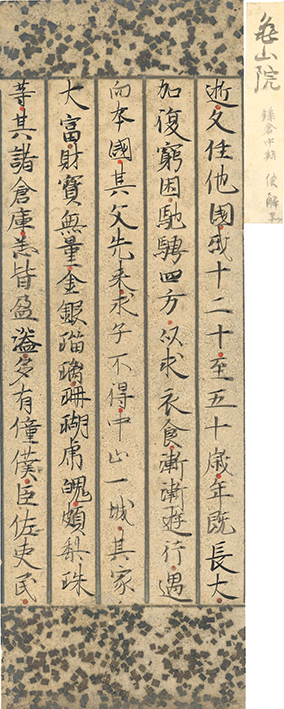 亀山院
鎌倉中期
逝久住他國或十二十至五十歳年既長大
加復窮困馳騁四方以求衣食漸漸遊行遇
向本國其父先来求子不得中止一城其家
大富財寶無量金銀瑠璃珊瑚虎魄頗梨珠
等其諸倉庫悉皆盈溢多有僮僕臣佐吏民